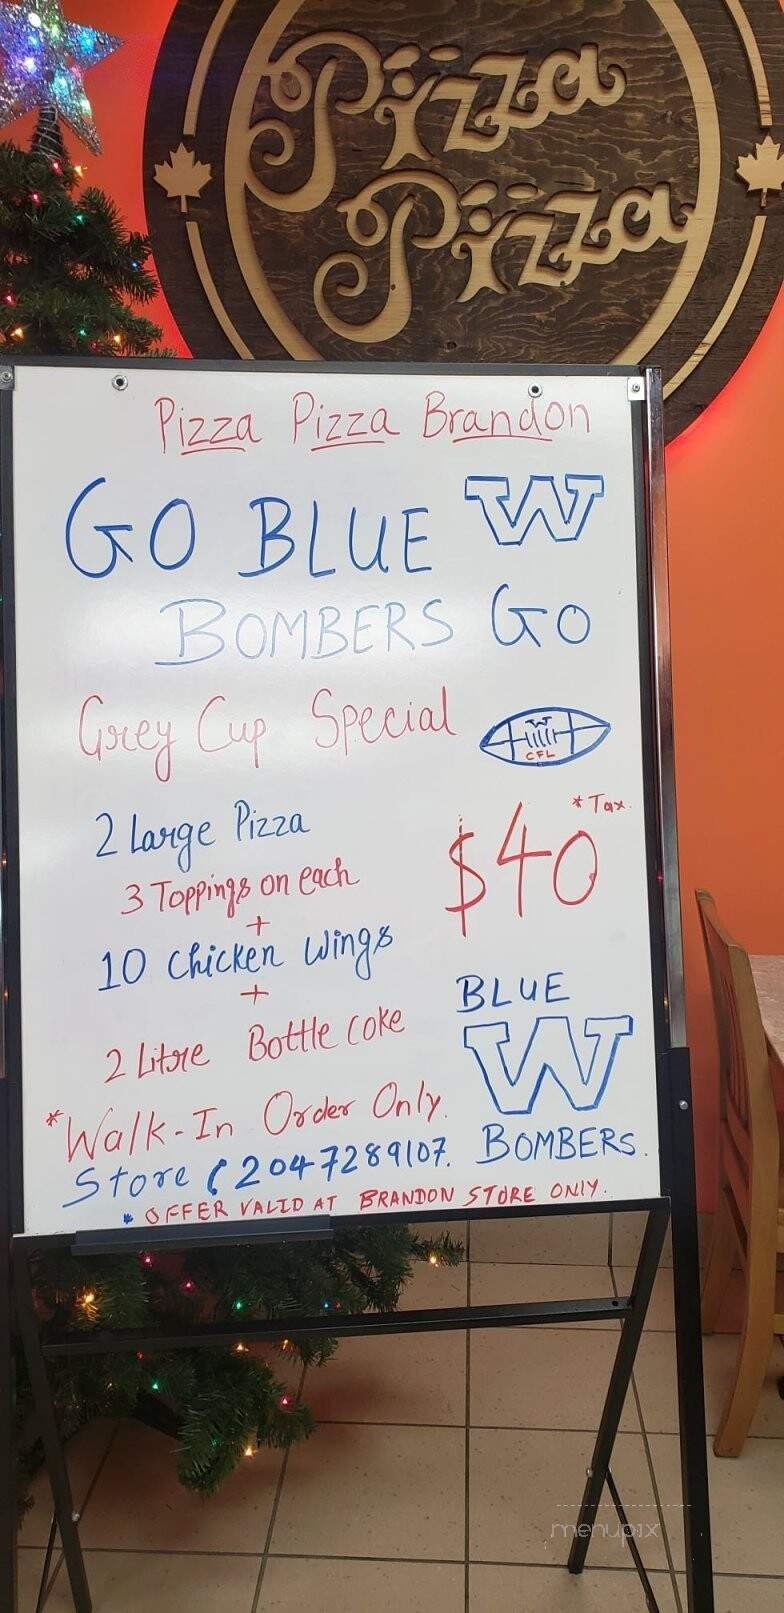 Pizza
Pizza
Pizza Pizza Brandon
GO BLUE W
BOMBERS GO
Grey Cup Special
W
CFL
2 Large Pizza
3 Toppings on each
+
10 Chicken Wings
+
2 Litre Bottle coke
* Tax.
$40
BLUE
W
BOMBERS.
*Walk-In Order Only.
Store 2047289107.
* OFFER VALID AT BRANDON STORE ONLY.
menupix